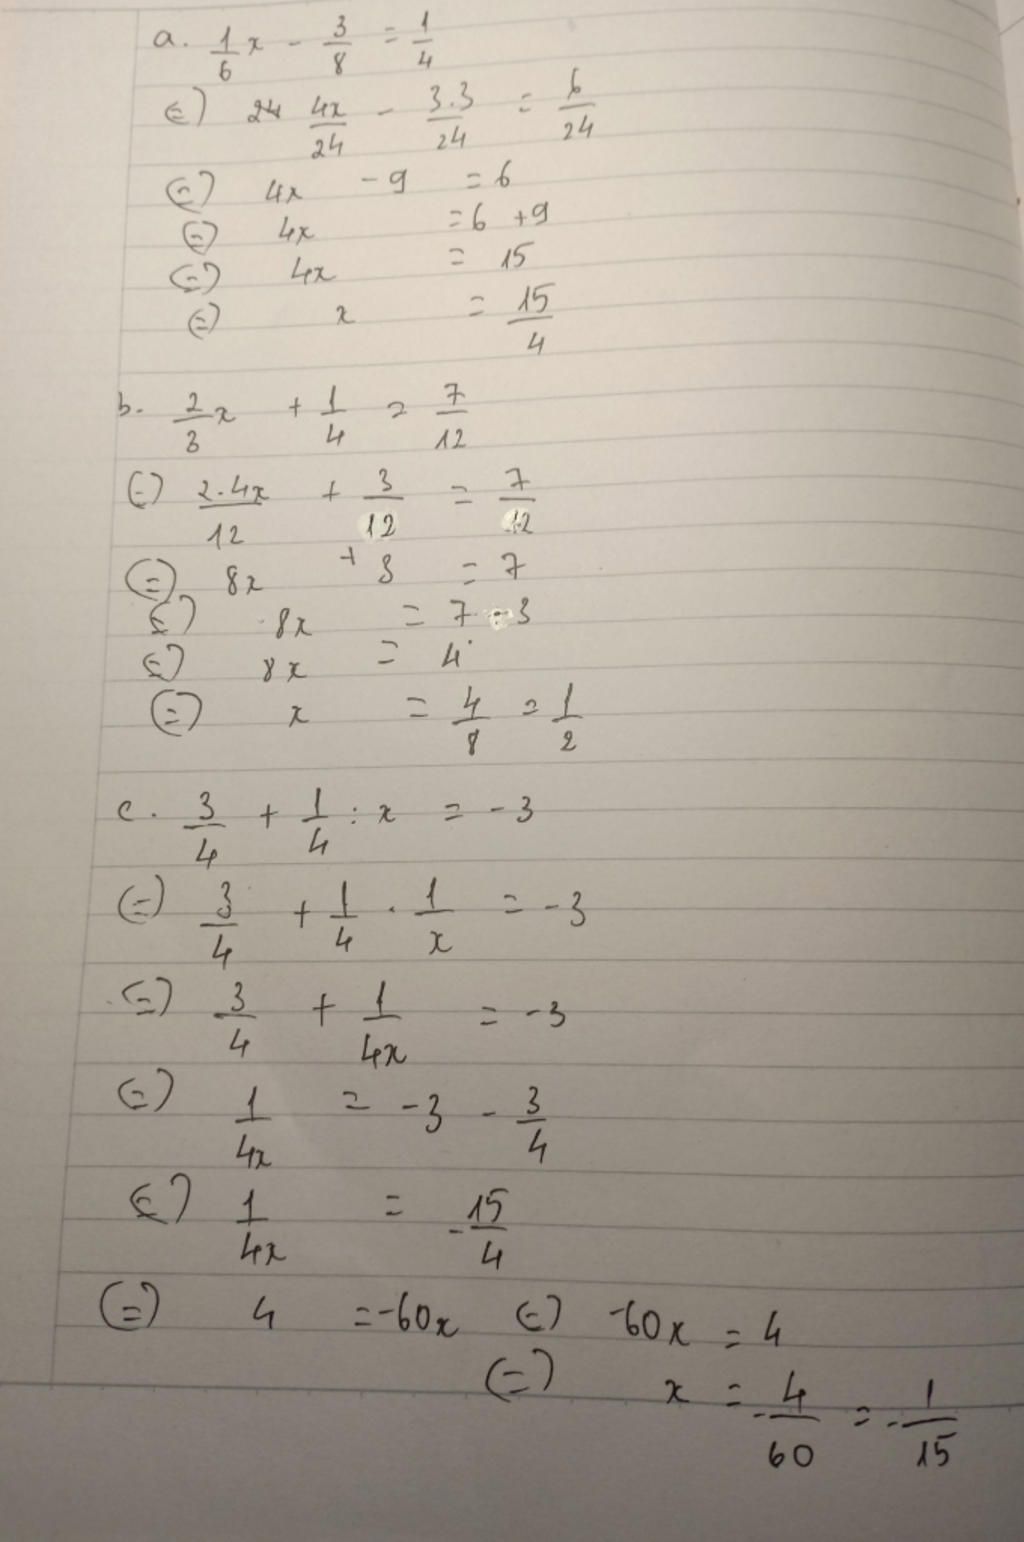 a. 1/6 x - 3/8 = 1/4
(=) 24 4x/24 - 3.3/24 = 6/24
(=) 4x - 9 = 6
(=) 4x = 6 + 9
(=) 4x = 15
(=) x = 15/4
b. 2/3 x + 1/4 = 7/12
(=) 2.4x/12 + 3/12 = 7/12
(=) 8x + 3 = 7
(=) 8x = 7 - 3
(=) 8x = 4
(=) x = 4/8 = 1/2
c. 3/4 + 1/4 : x = -3
(=) 3/4 + 1/4 . 1/x = -3
(=) 3/4 + 1/4x = -3
(=) 1/4x = -3 - 3/4
(=) 1/4x = -15/4
(=) 4 = -60x (=) -60x = 4
(=) x = -4/60 = -1/15